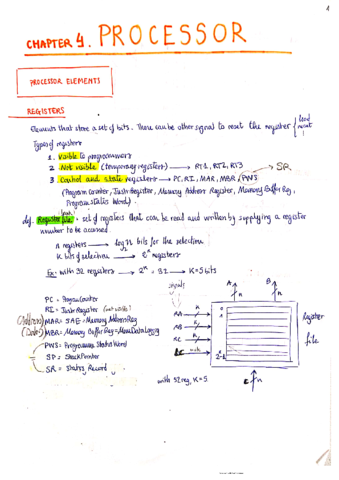 1
CHAPTER 4. PROCESSOR
PROCESSOR ELEMENTS
REGISTERS
Elements that store a set of bits. There can be other signal to reset the register { load
reset
Types of registers
1. Visible to programmers
2. Not visible (temporary registers) → RT1, RT2, RT3 → SR
3. Control and state registers → PC, RI, MAR, MBR, PWS
(Program Counter, Instr Register, Memory Address Register, Memory Buffer Reg,
Program status Word).
def. Register file: set of registers that can be read and written by supplying a register
number to be accessed.
n registers → log2 n bits for the selection
K bits of selection → 2^K registers
Ex: with 32 registers → 2^K = 32 → K=5 bits
signals
A
B
n
n
PC = Program Counter
RI = Instr Register
(Address) MAR = SAE = Memory Address Reg
(Data) MBR = Memory Buffer Reg =
PWS = Programme Status Word
SP = Stack Pointer
SR = Status Record
RA
RB
RC
K
0
1
Register
file
E
n
with 32 reg, K=5